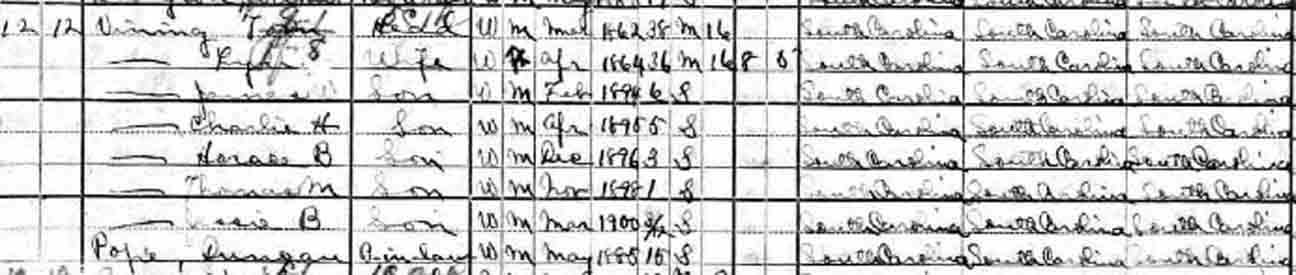 12 12 Vining Head W m Mar 1862 38 M 16 South Carolina South Carolina South Carolina
— S Wife W Apr 1864 36 M 16 8 South Carolina South Carolina South Carolina
— James Son W m Feb 1894 6 S South Carolina South Carolina South Carolina
— Charlie H Son W m Apr 1895 5 S South Carolina South Carolina South Carolina
— Horace B Son W m Dec 1896 3 S South Carolina South Carolina South Carolina
— Thomas M Son W m Nov 1898 1 S South Carolina South Carolina South Carolina
— B Son W m Mar 1900 S South Carolina South Carolina South Carolina
Pope, B in law W m May 1885 15 S South Carolina South Carolina South Carolina